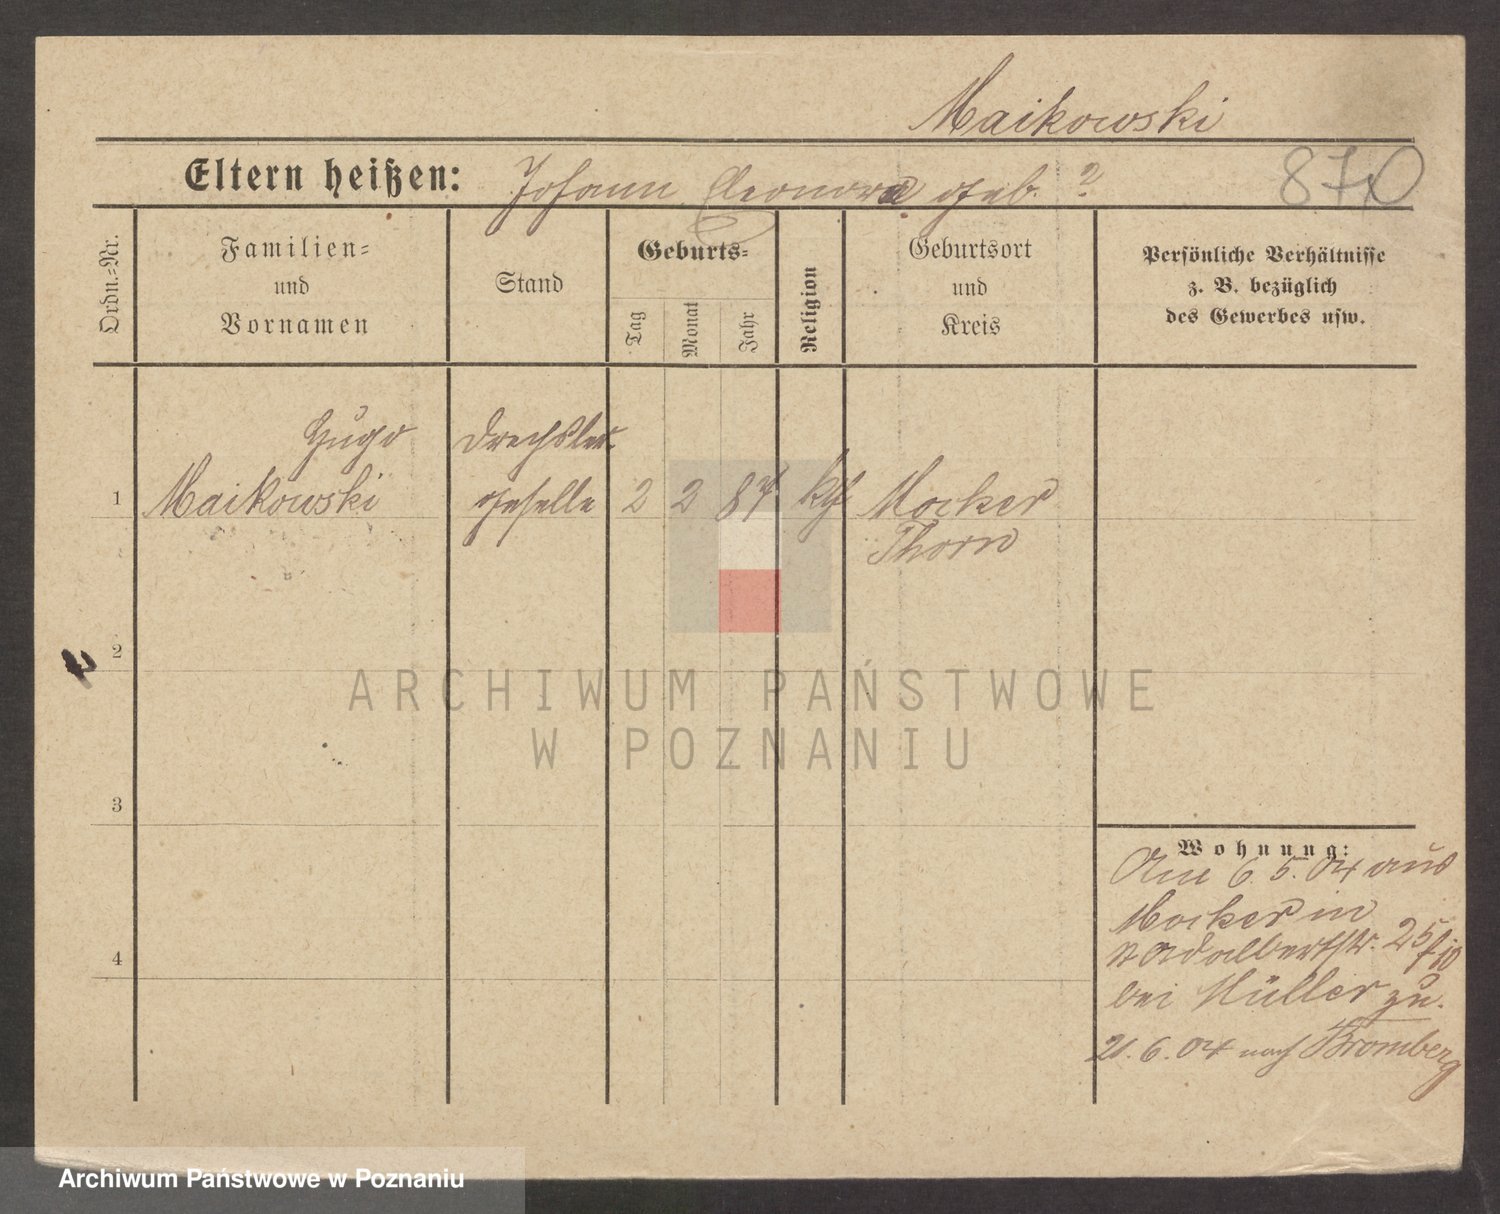 Maikowski
Eltern heißen: Johann Eleonora geb. ?
870
Ordn.=Nr.
Familien=
und
Vornamen
Stand
Geburts=
Tag
Monat
Jahr
Religion
Geburtsort
und
Kreis
Persönliche Verhältnisse
z. B. bezüglich
des Gewerbes usw.
1
Hugo
Maikowski
Drechsler-
geselle
2
2
84
kth
Mocker
Thorn
2
3
4
Wohnung:
Am 6.5.04 aus
Mocker in
St Adalbertstr. 25/
bei Müller zu.
21.6.04 nach Bromberg
ARCHIWUM PAŃSTWOWE
W POZNANIU
Archiwum Państwowe w Poznaniu